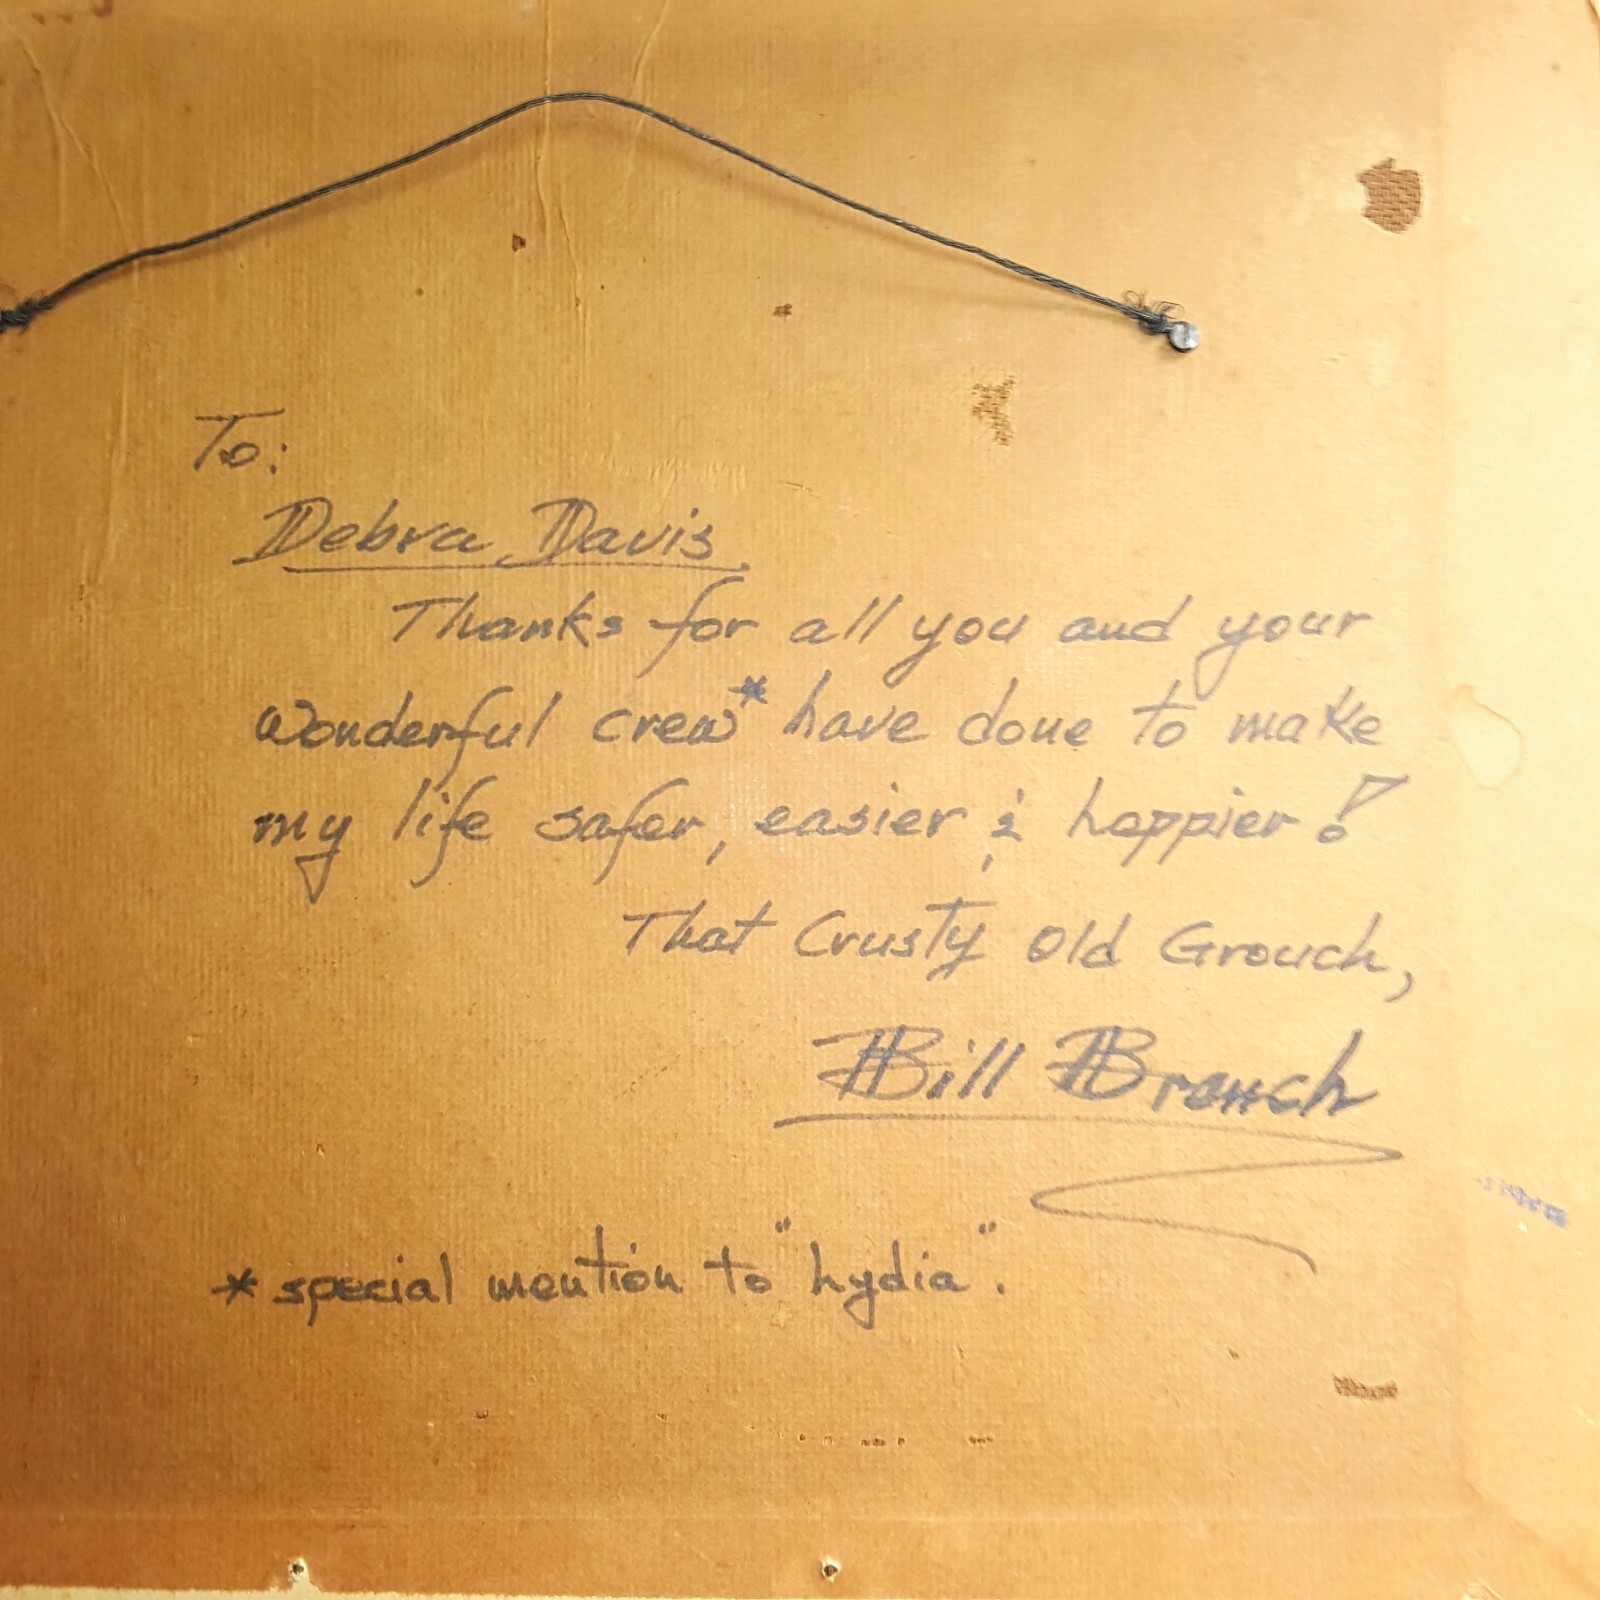 To:
Debra Davis
Thanks for all you and your
wonderful crew* have done to make
my life safer, easier & happier!
That Crusty Old Grouch,
Bill Branch
* special mention to "Lydia".